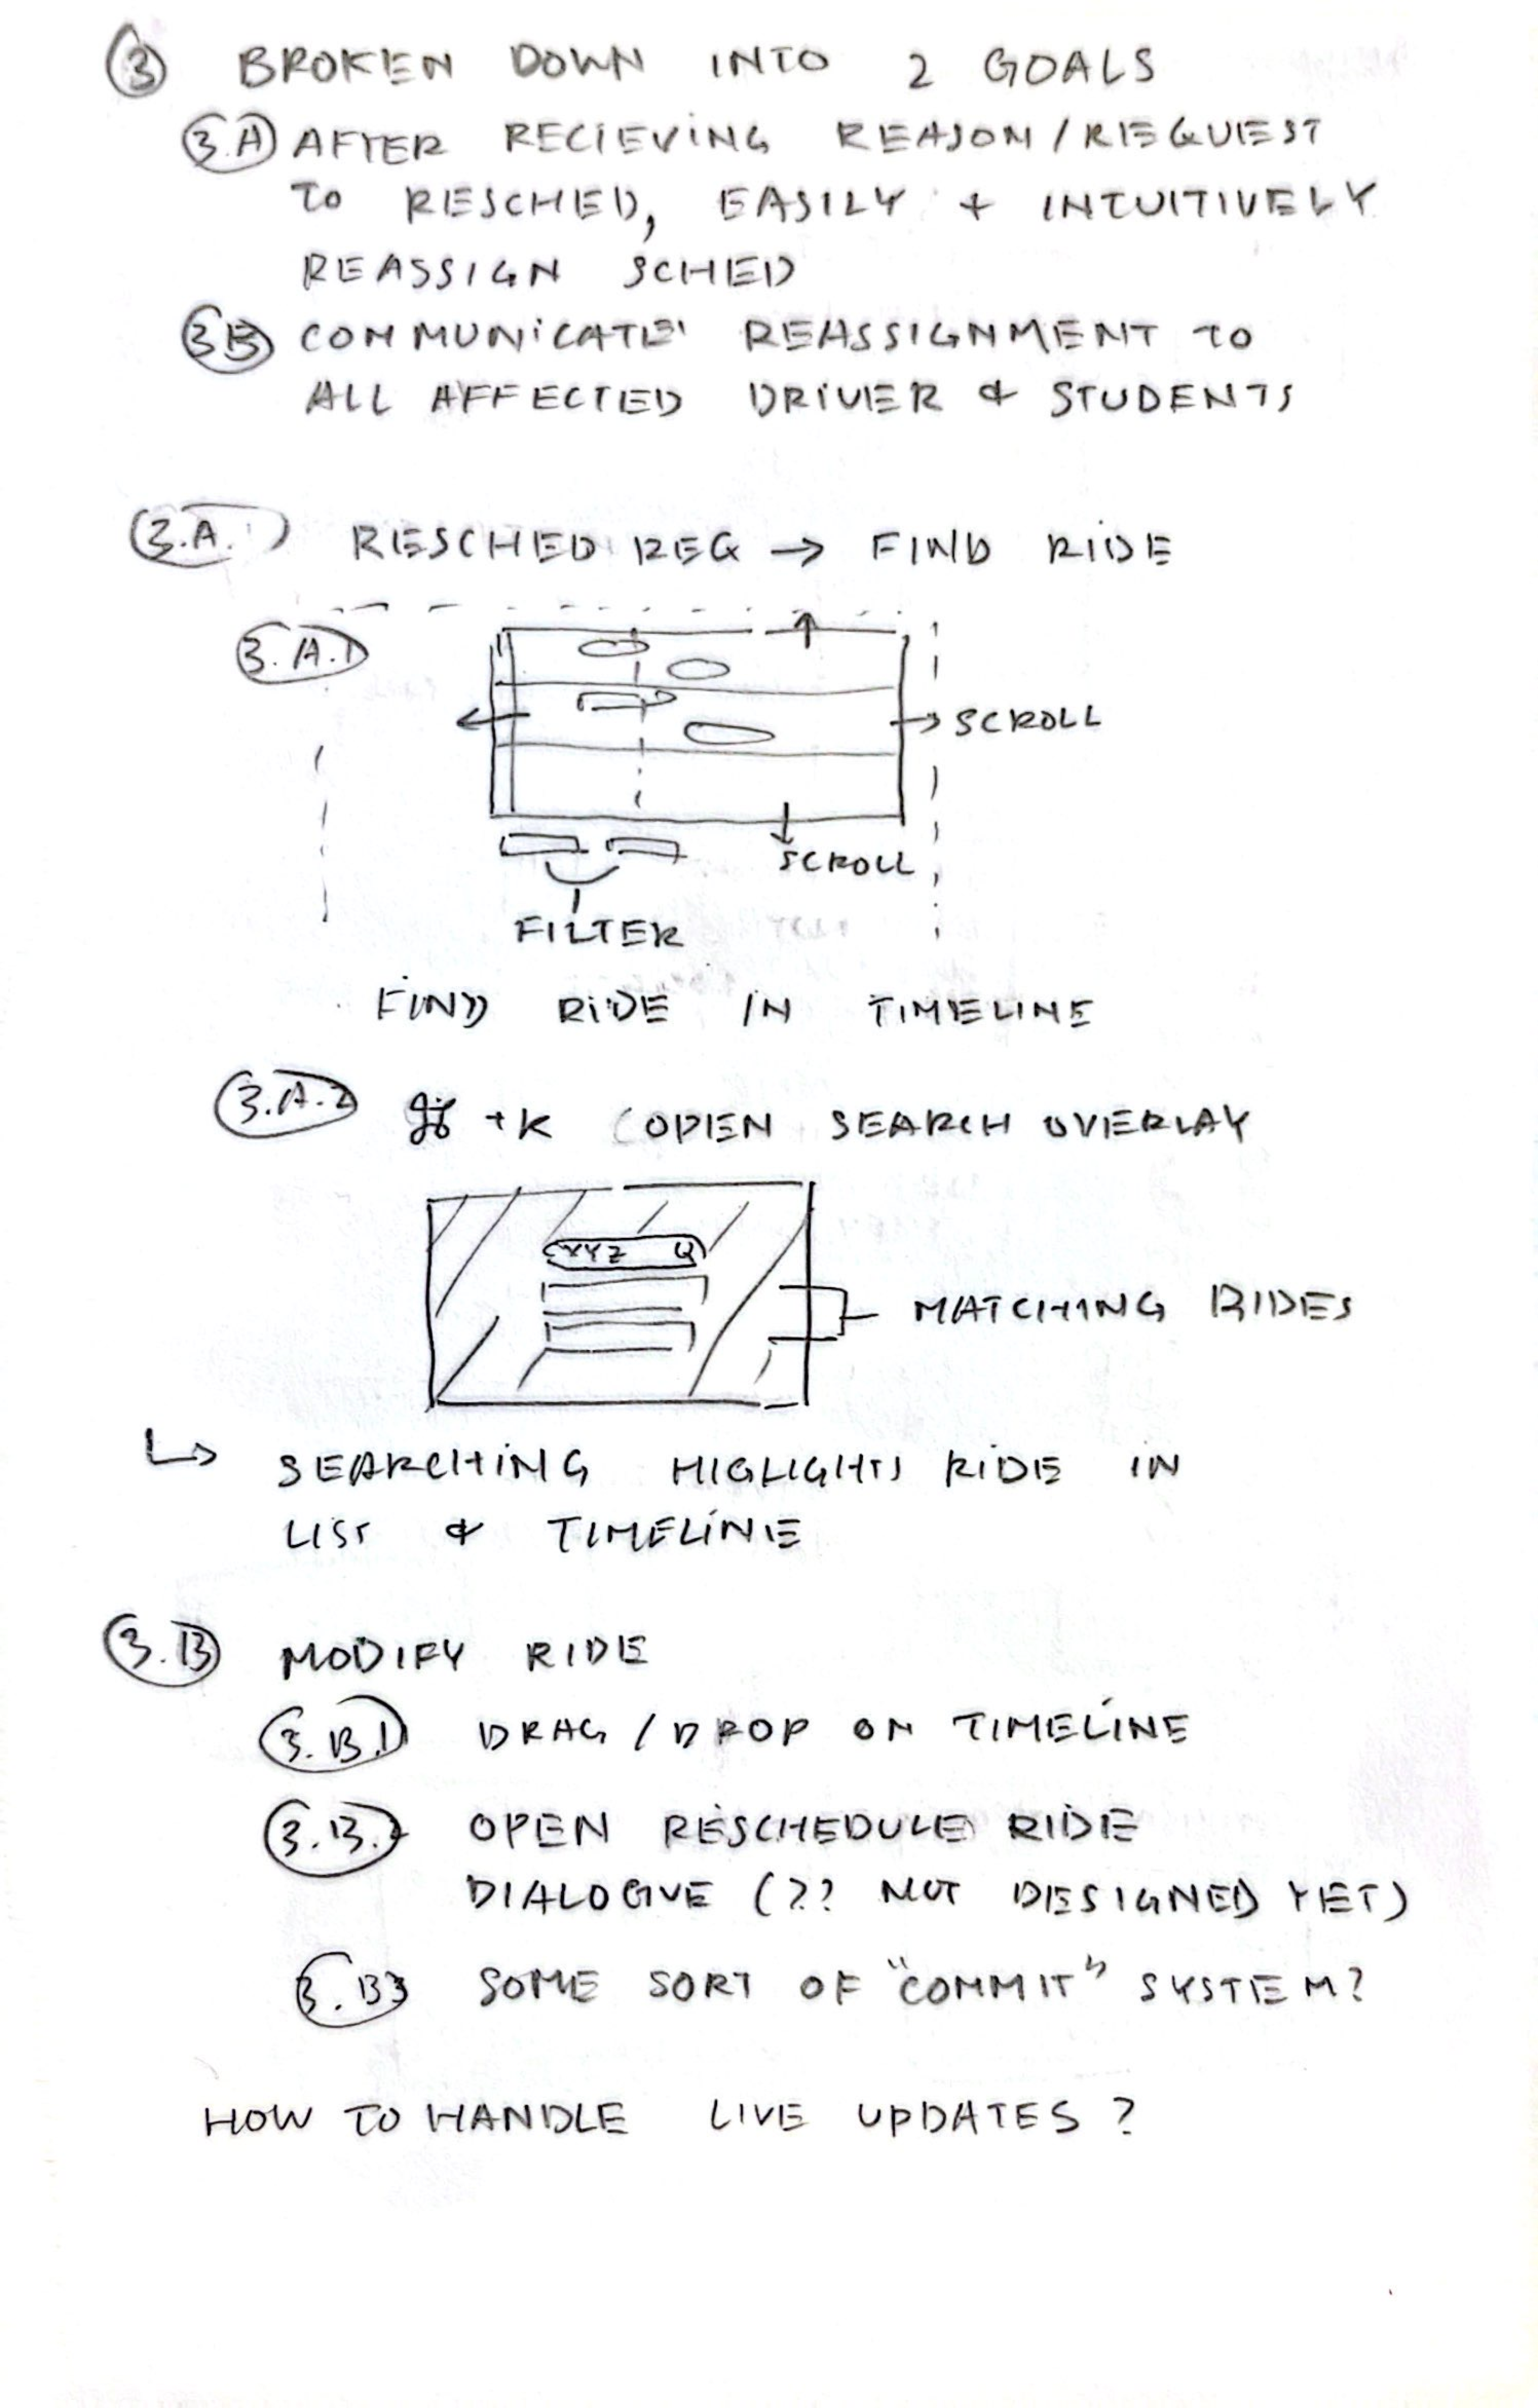 3 BROKEN DOWN INTO 2 GOALS
3.A AFTER RECIEVING REASON/REQUEST
TO RESCHED, EASILY + INTUITIVELY
REASSIGN SCHED
3B COMMUNICATE REASSIGNMENT TO
ALL AFFECTED DRIVER & STUDENTS
3.A. RESCHED REQ → FIND RIDE
3.A.1
SCROLL
SCROLL
FILTER
FIND RIDE IN TIMELINE
3.A.2 ⌘ +K (OPEN SEARCH OVERLAY
XYZ
MATCHING RIDES
↳ SEARCHING HIGLIGHTS RIDE IN
LIST & TIMELINE
3.B MODIFY RIDE
3.B.1 DRAG/DROP ON TIMELINE
3.B.2 OPEN RESCHEDULE RIDE
DIALOGUE (?? NOT DESIGNED YET)
3.B3 SOME SORT OF "COMMIT" SYSTEM?
HOW TO HANDLE LIVE UPDATES?